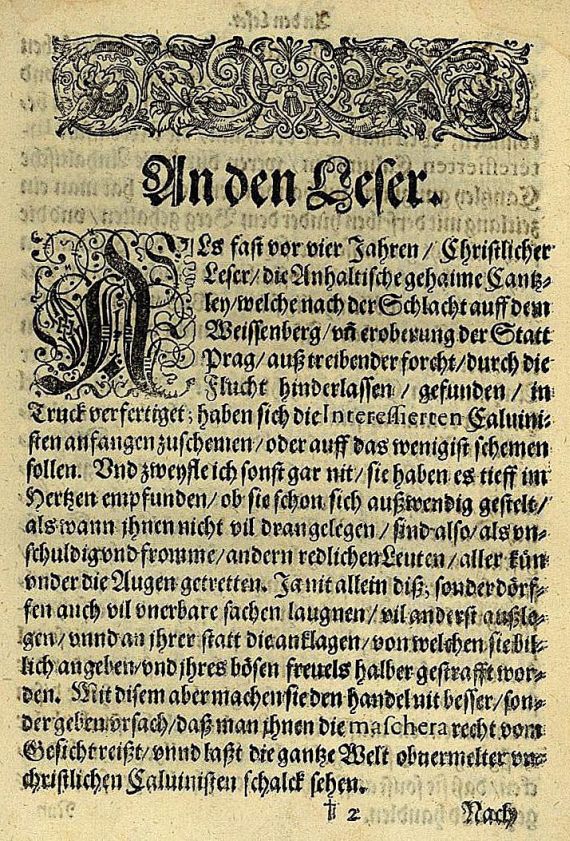 An den Leser.
ALs fast vor vier Jahren / Christlicher
Leser / die Anhaltische gehaime Cantz-
ley / welche nach der Schlacht auff dem
Weissenberg / vñ eroberung der Statt
Prag / auß treibender forcht / durch die
Flucht hinderlassen / gefunden / in
Truck verfertiget; haben sich die Interessierten Caluini-
sten anfangen zuschemen / oder auff das wenigist schemen
sollen. Vnd zweyfle ich sonst gar nit / sie haben es tieff im
Hertzen empfunden / ob sie schon sich außwendig gestelt /
als wann jhnen nicht vil drangelegen / sind also / als vn-
schuldig vnd fromme / andern redlichen Leuten / aller kün
vnder die Augen getretten. Ja nit allein diß; sonder dörf-
fen auch vil vnerbare sachen laugnen / vil anderst außle-
gen / vnnd an jhrer statt die anklagen / von welchen sie bil-
lich angeben / vnd jhres bösen freuels halber gestrafft wor-
den. Mit disem aber machen sie den handel nit besser / son-
der geben vrsach / daß man jhnen die maschera recht vom
Gesicht reißt / vnnd laßt die gantze Welt obuermelter vn-
christlichen Caluinisten schalck sehen.
† 2 Nach